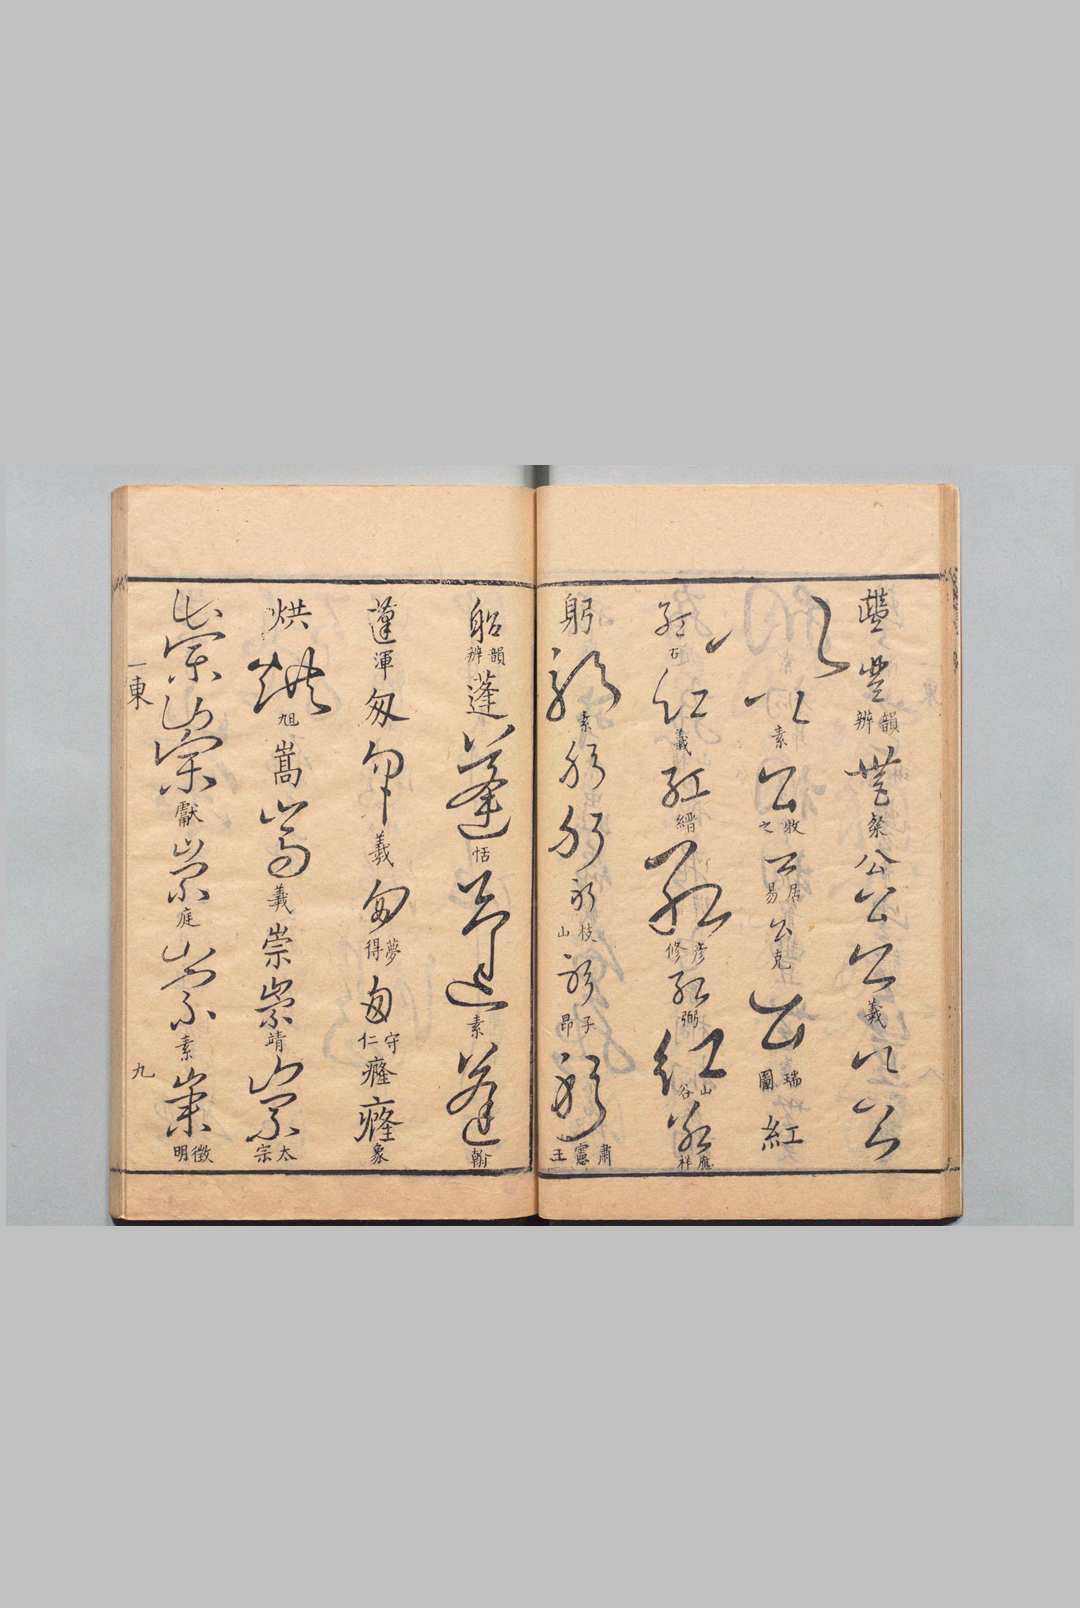 豐豐韻辨豐公公公義公公
公公素公牧之公居易公克公瑞圖紅
紅紅義紅縉紅彥修紅弼紅山谷紅應祥
躬躬素躬躬躬枝山躬子昂躬肅憲王
韻辨蓬蓬恬蓬素蓬翰
蓬渾匆匆義匆夢得匆守仁癃癃象
烘烘旭嵩嵩義崇崇靖崇太宗
崇崇獻崇庭崇素崇徵明
一東
九